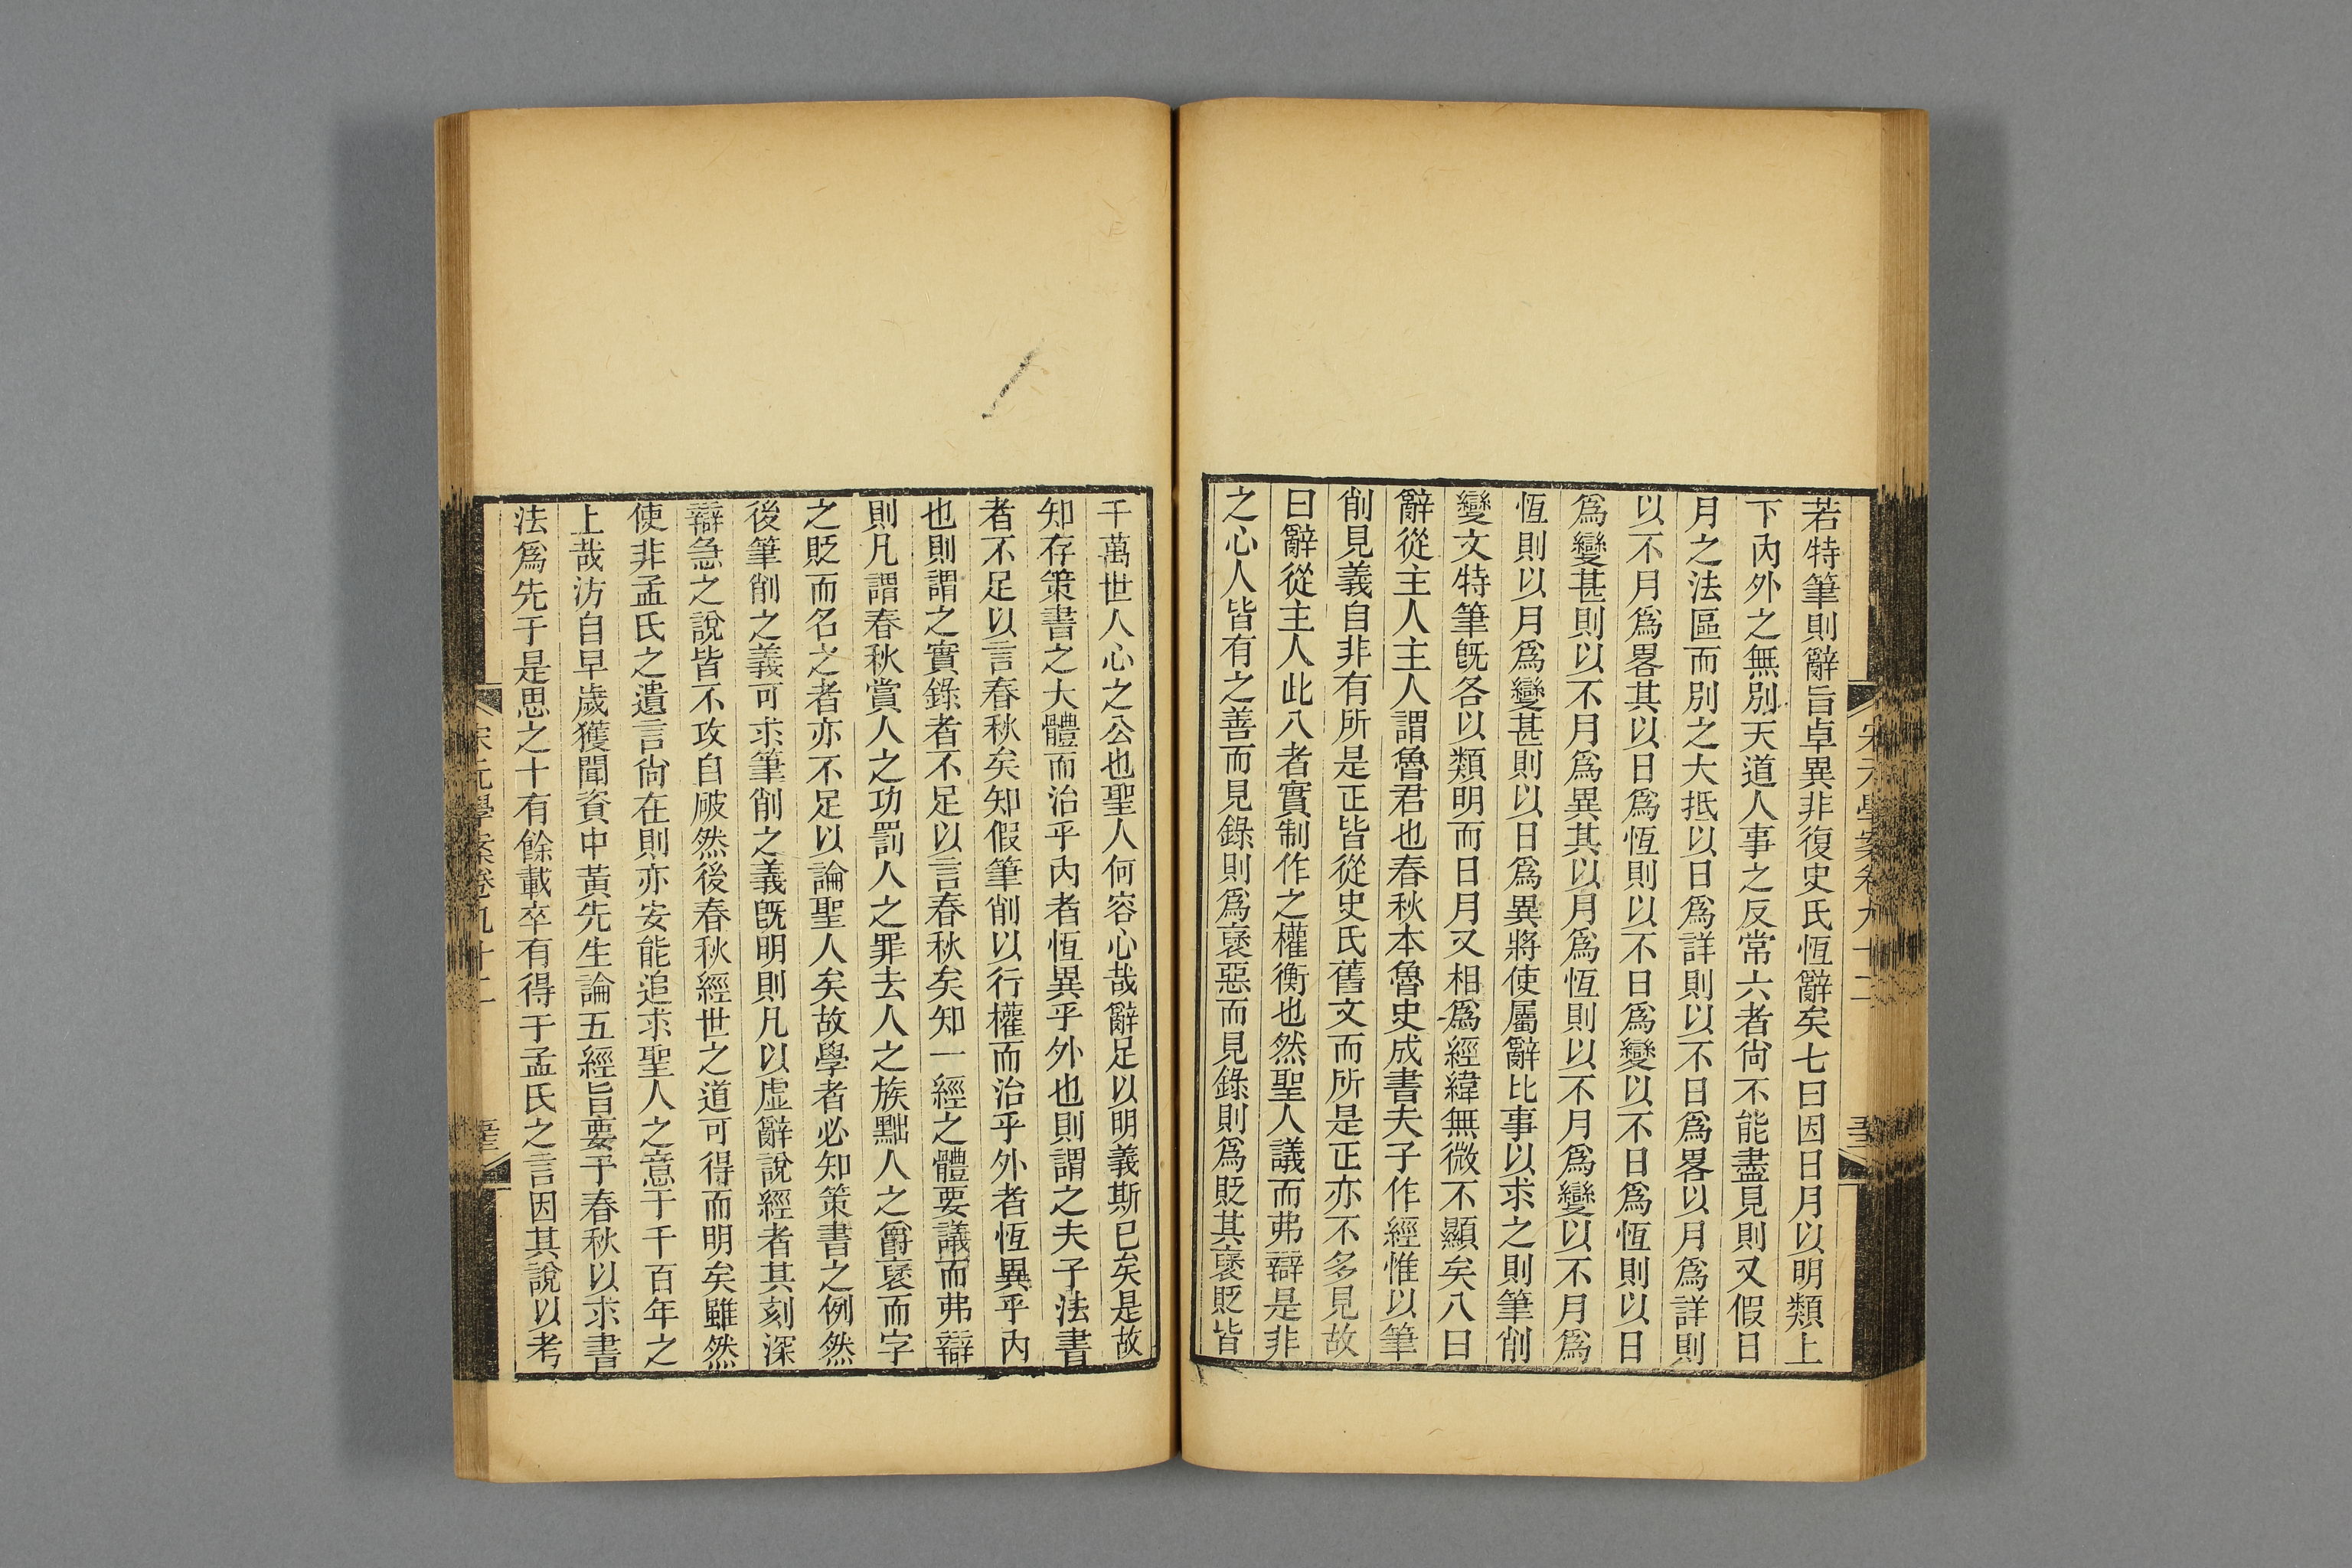 若特筆則辭旨卓異非復史氏恆辭矣七曰因日月以明類上
下內外之無別天道人事之反常六者尙不能盡見則又假日
月之法區而別之大抵以日爲詳則以不日爲畧以月爲詳則
以不月爲畧其以日爲恆則以不日爲變以不日爲恆則以日
爲變甚則以不月爲異其以月爲恆則以不月爲變以不月爲
恆則以月爲變甚則以日爲異將使屬辭比事以求之則筆削
變文特筆旣各以類明而日月又相爲經緯無微不顯矣八曰
辭從主人主人謂魯君也春秋本魯史成書夫子作經惟以筆
削見義自非有所是正皆從史氏舊文而所是正亦不多見故
曰辭從主人此八者實制作之權衡也然聖人議而弗辯是非
之心人皆有之善而見錄則爲褒惡而見錄則爲貶其褒貶皆
宋元學案卷九十二
千萬世人心之公也聖人何容心哉辭足以明義斯已矣是故
知存策書之大體而治乎內者恆異乎外也則謂之夫子法書
者不足以言春秋矣知假筆削以行權而治乎外者恆異乎內
也則謂之實錄者不足以言春秋矣知一經之體要議而弗辯
則凡謂春秋賞人之功罰人之罪去人之族黜人之爵褒而字
之貶而名之者亦不足以論聖人矣故學者必知策書之例然
後筆削之義可求筆削之義旣明則凡以虛辭說經者其刻深
辯急之說皆不攻自破然後春秋經世之道可得而明矣雖然
使非孟氏之遺言尙在則亦安能追求聖人之意于千百年之
上哉汸自早歲獲聞資中黃先生論五經旨要于春秋以求書
法爲先于是思之十有餘載卒有得于孟氏之言因其說以考
宋元學案卷九十二